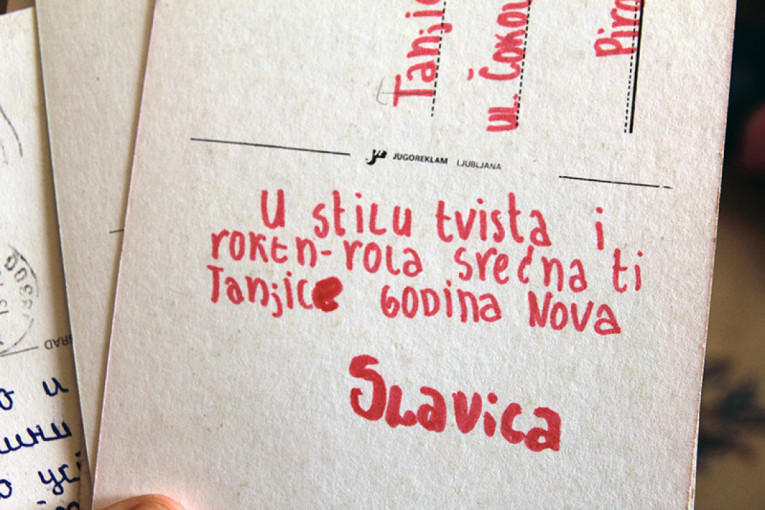 Tanjic
ul. Čoko
Piro
JUGOREKLAM LJUBLJANA
U stilu tvista i
roken-rola srećna ti
Tanjice Godina Nova
Slavica
GRAD